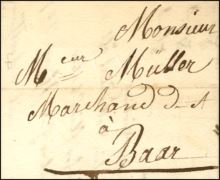 Monsieur
Mceur Müller
Marchand d
à
Baar